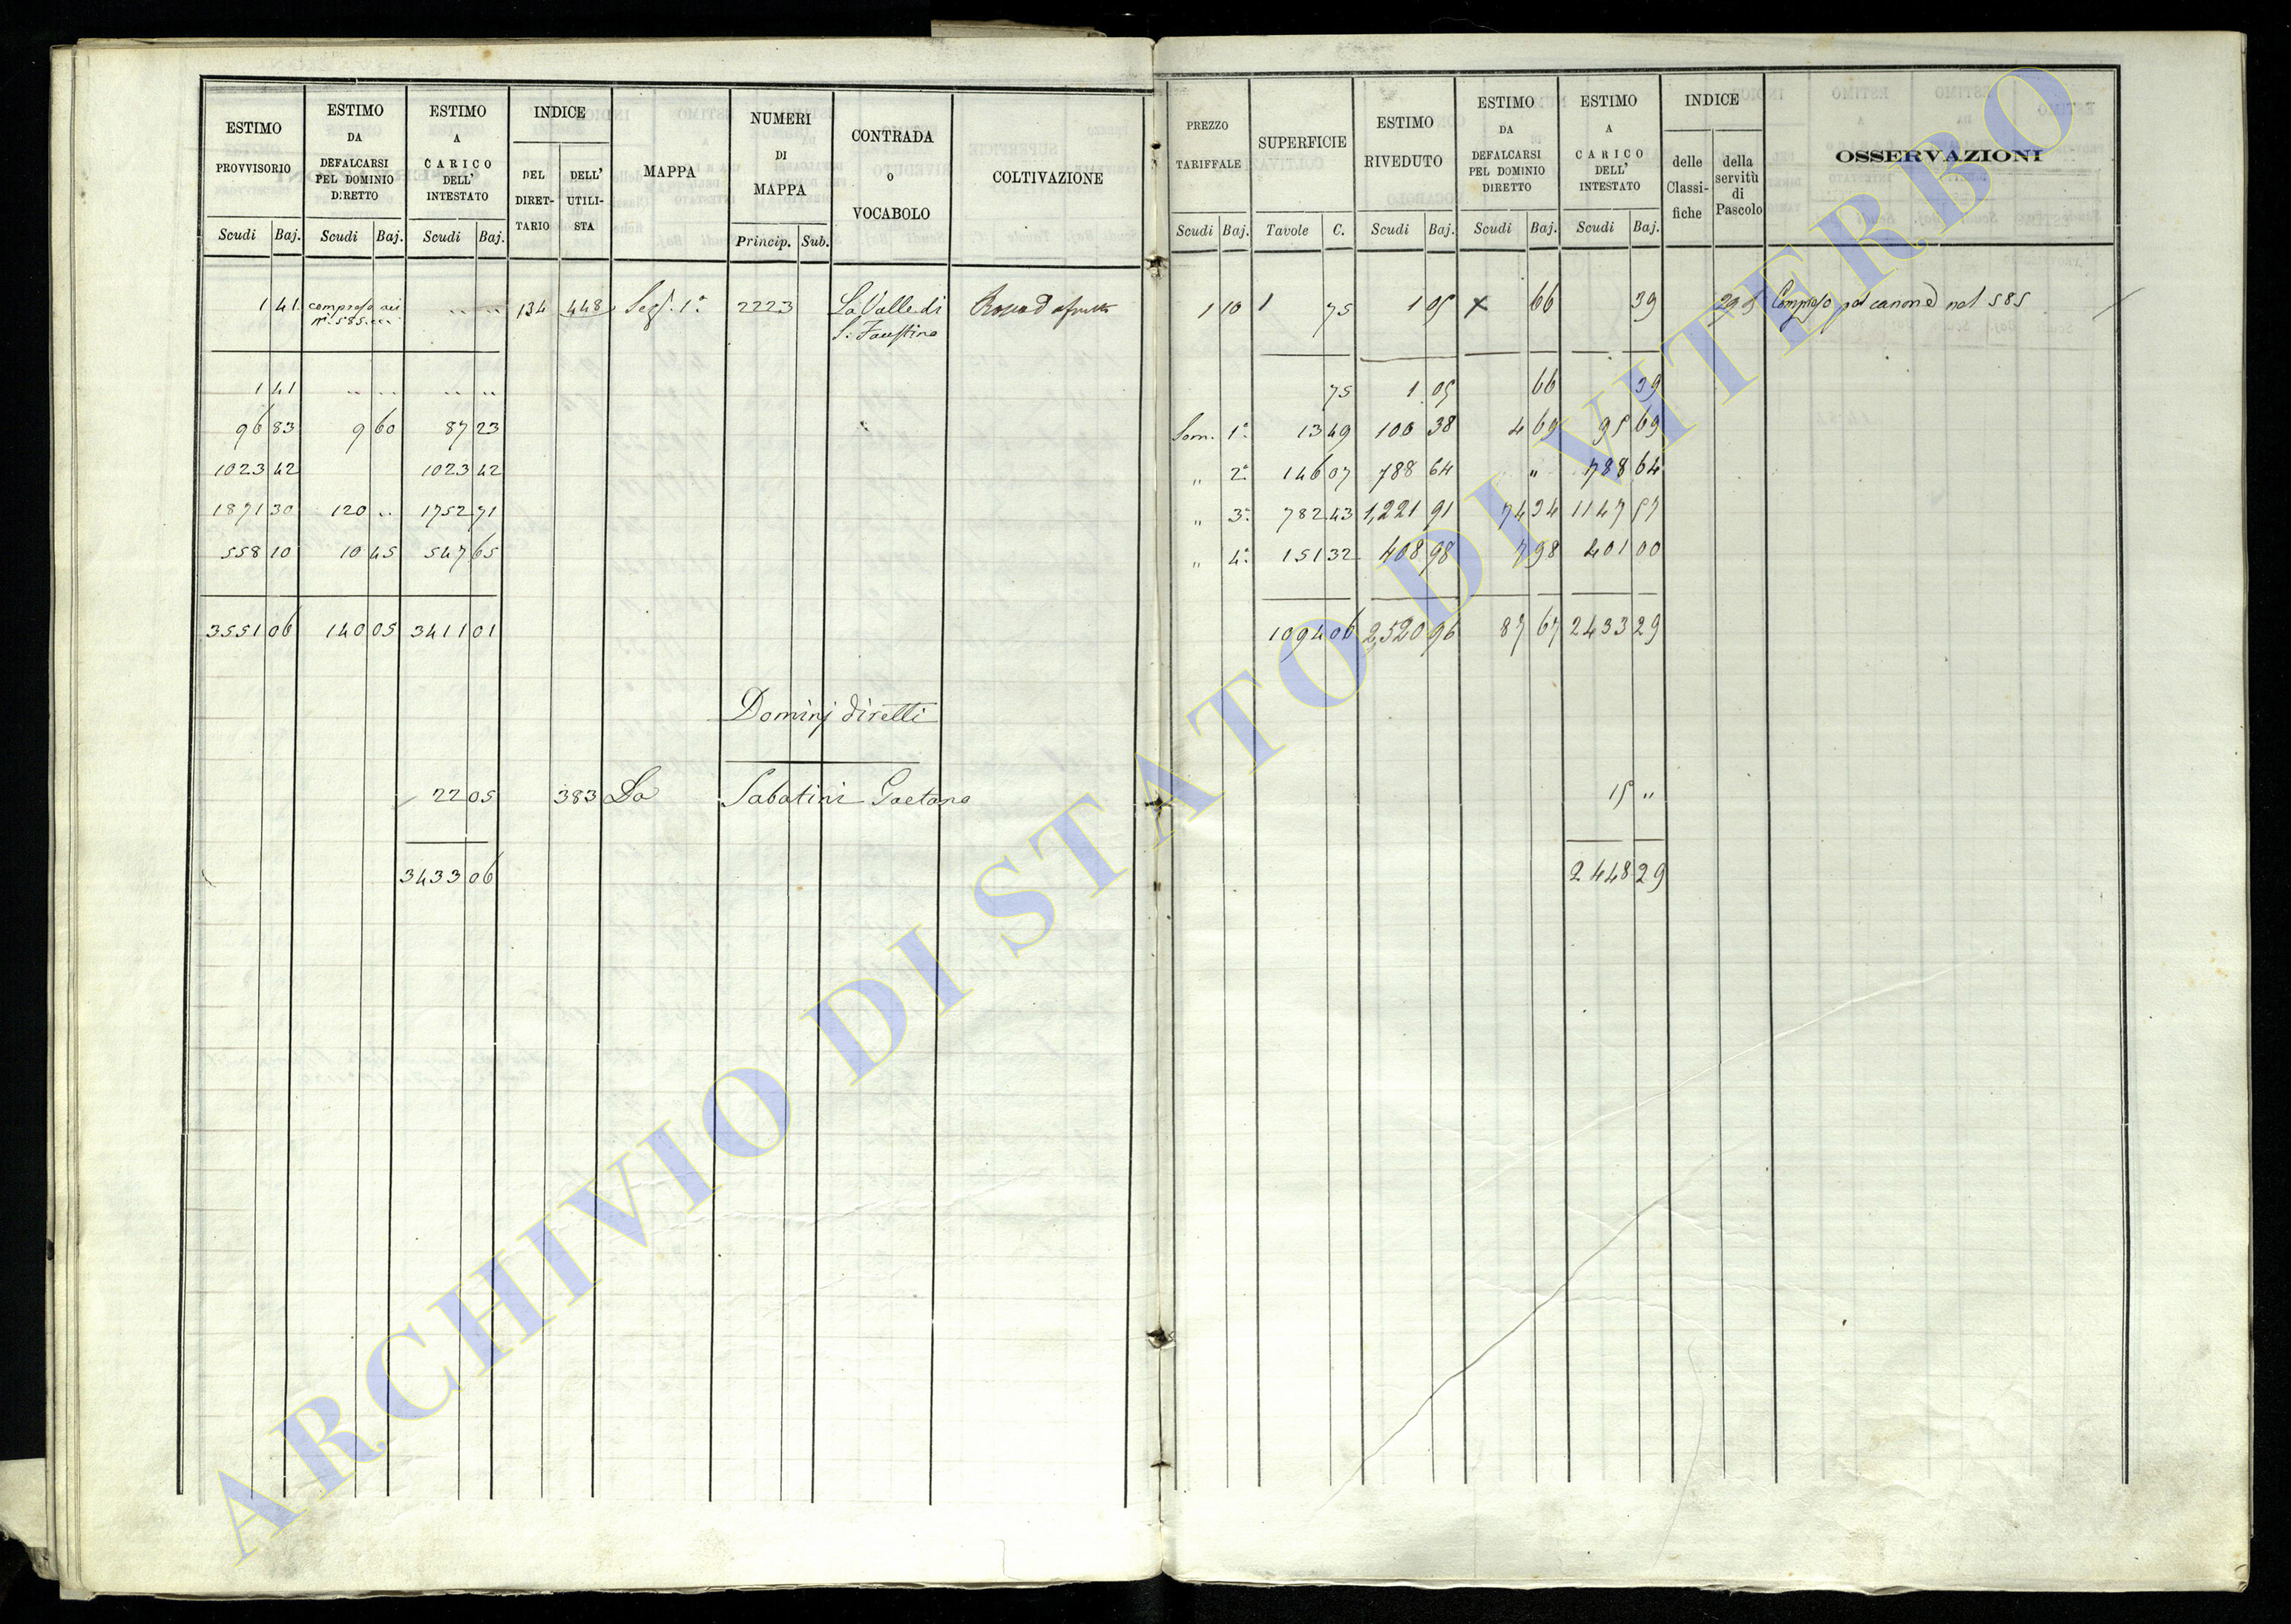 ESTIMO PROVVISORIO
ESTIMO DA DEFALCARSI PEL DOMINIO DIRETTO
ESTIMO A CARICO DELL' INTESTATO
INDICE
DEL DIRET- TARIO
DELL' UTILI- STA
MAPPA
NUMERI DI MAPPA
CONTRADA O VOCABOLO
COLTIVAZIONE
Scudi Baj. Scudi Baj. Scudi Baj. Princip. Sub.
1 41 compreso nei 134 448 Sez. 1a 2223 La Valle di
n. 585 S. Faustino
1 41
96 83 9 60 87 23
1023 42 1023 42
1871 30 120 .. 1752 71
558 10 10 45 547 65
3551 06 140 05 3411 01
Dominj diretti
22 05 383 La Sabatini Gaetano
3433 06
PREZZO TARIFFALE
SUPERFICIE
ESTIMO RIVEDUTO
ESTIMO DA DEFALCARSI PEL DOMINIO DIRETTO
ESTIMO A CARICO DELL' INTESTATO
INDICE
delle Classi- fiche
della servitù di Pascolo
OSSERVAZIONI
Scudi Baj. Tavole C. Scudi Baj. Scudi Baj. Scudi Baj.
1 10 1 75 1 05 x 66 39 Compreso pel canone nel 585
75 1 05 66 39
Som. 1a 13 49 100 38 4 69 95 69
" 2a 146 07 788 64 " 788 64
" 3a 782 43 1,221 91 74 34 1147 57
" 4a 151 32 408 98 7 98 401 00
1094 06 2,520 96 87 67 2433 29
15 "
2448 29
ARCHIVIO DI STATO DI VITERBO